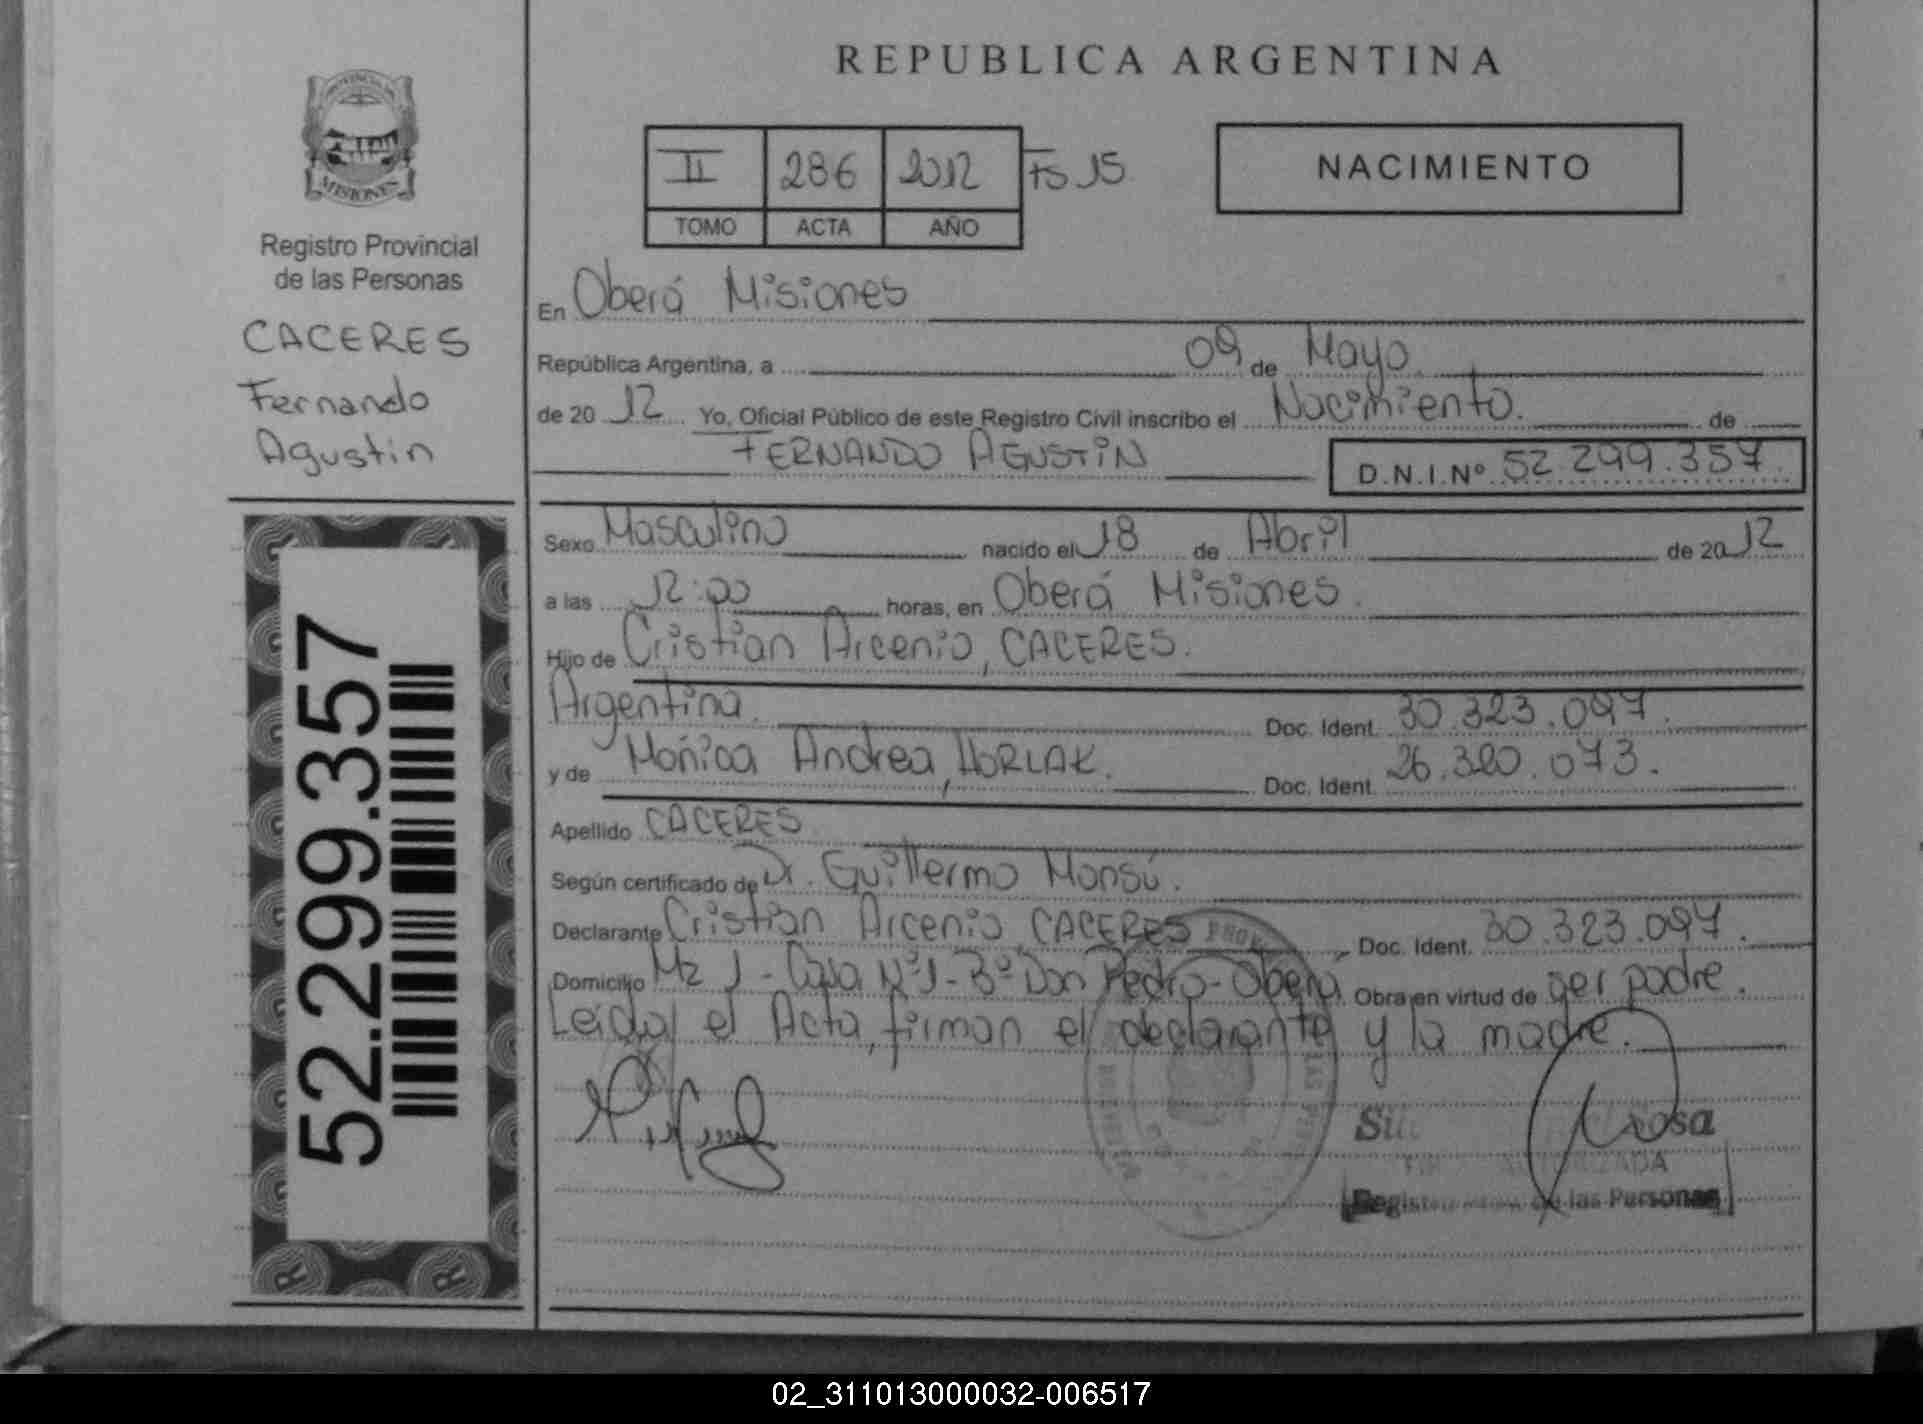 REPUBLICA ARGENTINA
PROVINCIA DE
MISIONES
Registro Provincial
de las Personas
CACERES
Fernando
Agustin
52.299.357
II 286 2012 FS 15
TOMO ACTA AÑO
NACIMIENTO
En Oberá Misiones
República Argentina, a 09 de Mayo
de 20 12 Yo, Oficial Público de este Registro Civil inscribo el Nacimiento. de
FERNANDO AGUSTIN D.N.I.Nº 52.299.357.
Sexo Masculino nacido el 18 de Abril de 20 12
a las 12:00 horas, en Oberá Misiones.
Hijo de Cristian Arcenio, CACERES.
Argentina. Doc. Ident. 30.323.097.
y de Mónica Andrea, Doc. Ident. 26.320.073.
Apellido CACERES
Según certificado de Dr. Guillermo Monsú.
Declarante Cristian Arcenio, CACERES Doc. Ident. 30.323.097.
Domicilio Mz 1 - Casa Nº1 - Bº Don Pedro - Oberá Obra en virtud de ser padre.
Leída el Acta, firman el declarante y la madre.
Sil Sosa
AUTORIZADA
Registro de las Personas
02_311013000032-006517